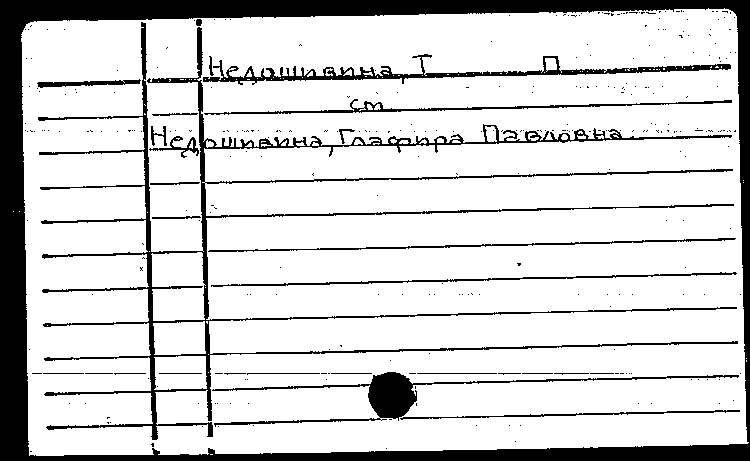 Недошивина, Т П
см
Недошивина, Глафира Павловна